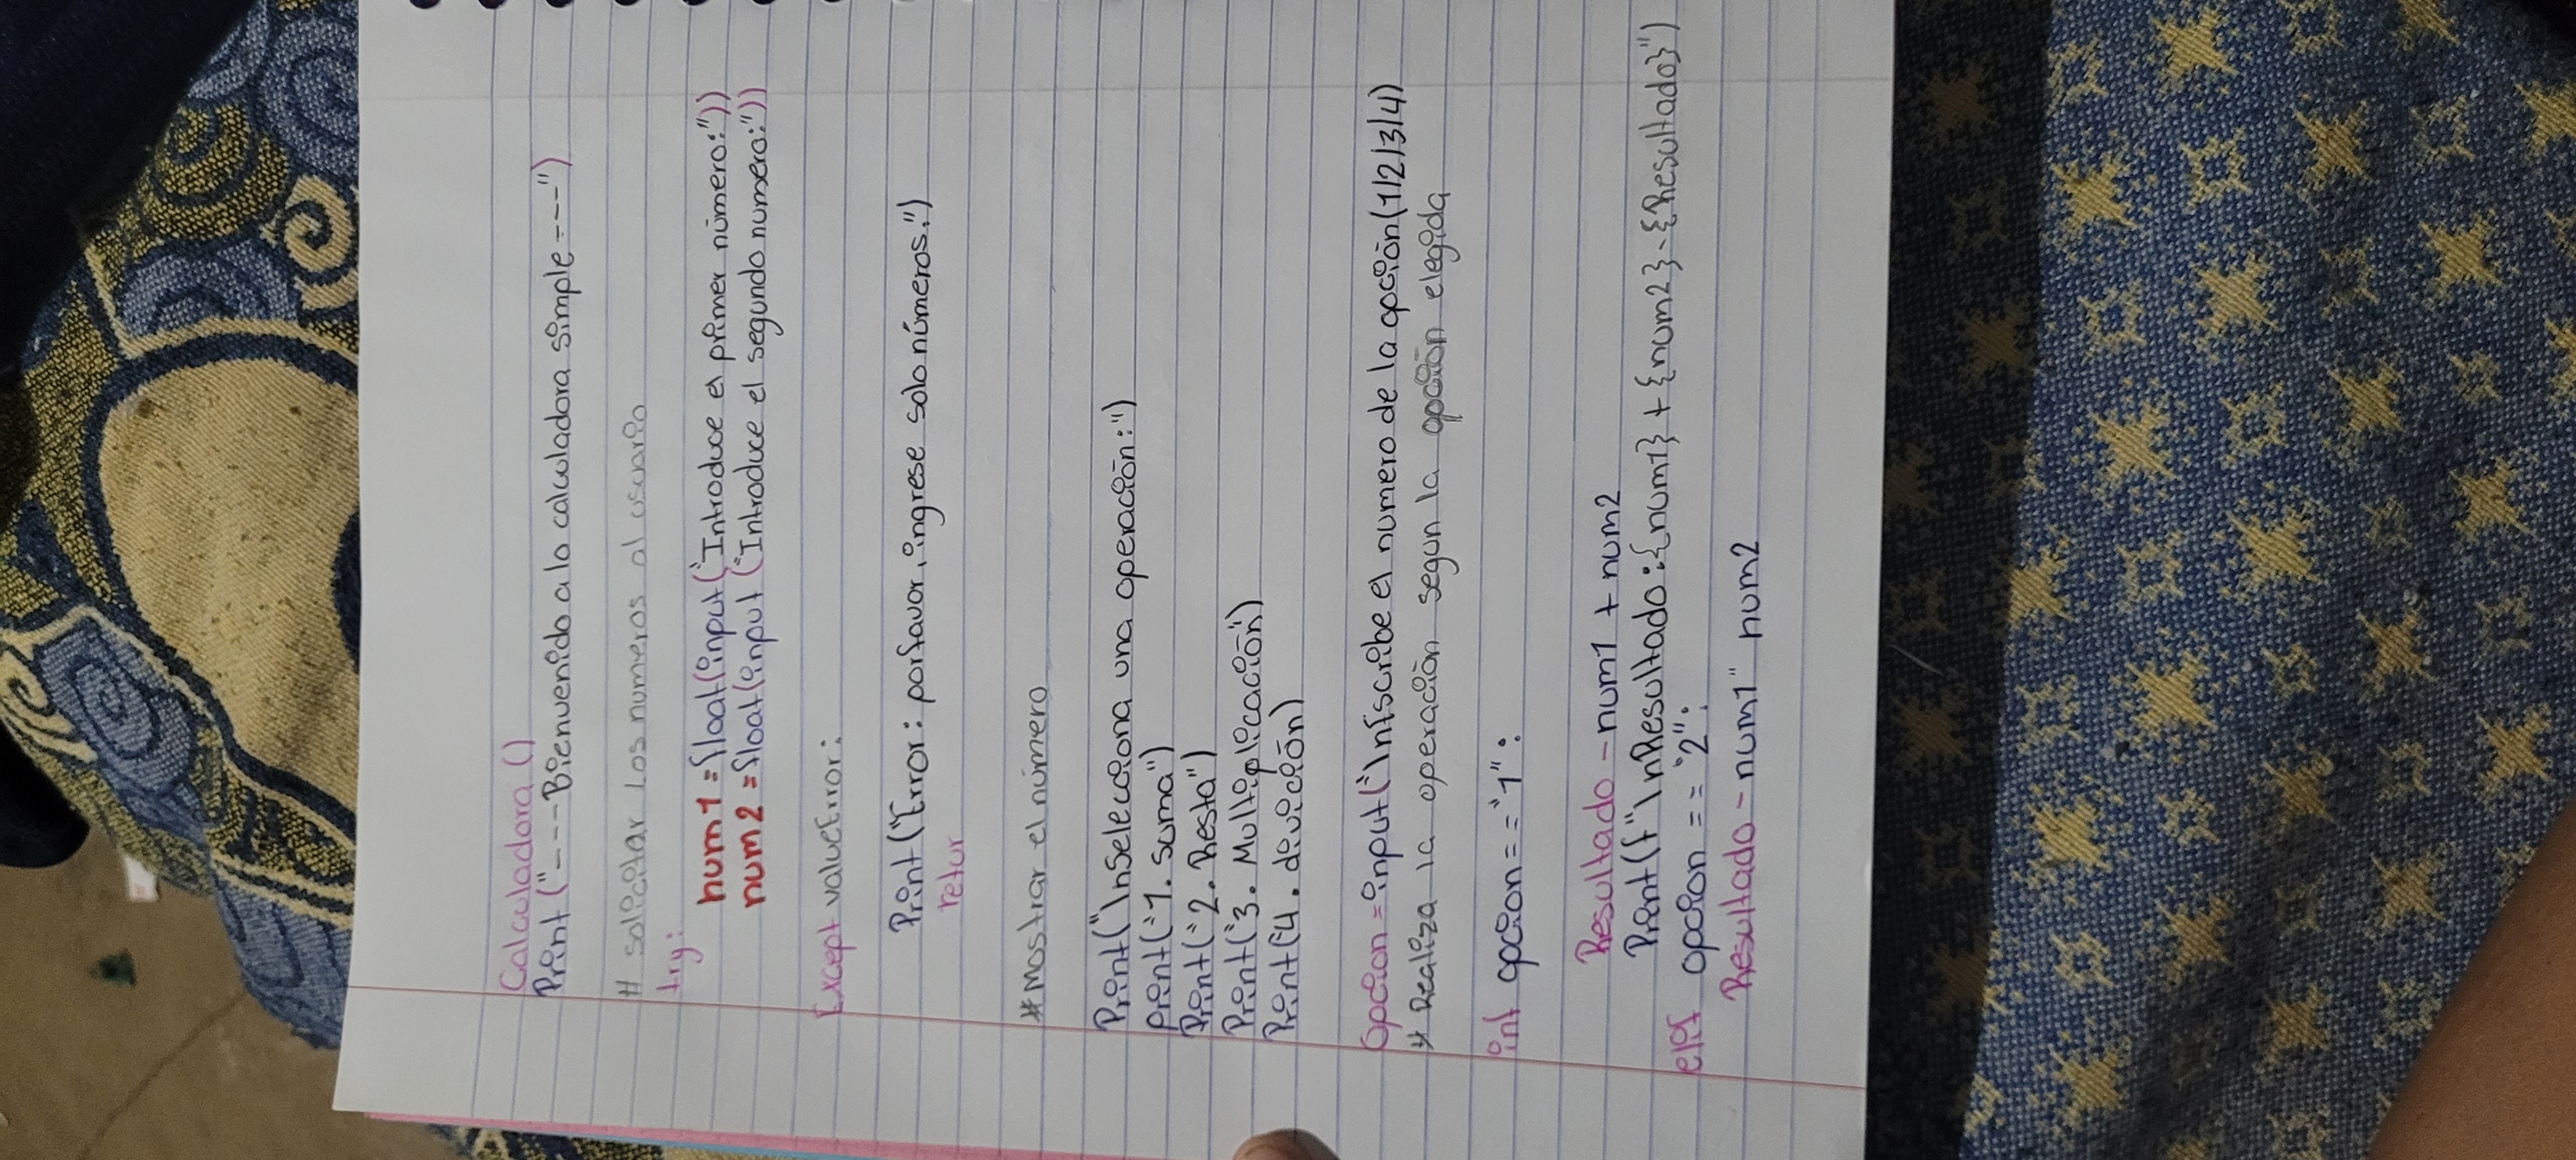 Calculadora ()
Print ("---Bienvenido a la calculadora simple ---")
# solicitar los numeros al usuario
try:
num1 = float(input("Introduce el primer número:"))
num2 = float(input ("Introduce el segundo numero:"))
Except valueError:
Print ("Error: porfavor, ingrese solo números.")
retur
# Mostrar el número
Print("\nSelecciona una operación:")
print("1. suma")
Print("2. Resta")
Print("3. Multiplicación")
Print("4. divición)
Opcion = input("\nEscribe el numero de la opción(1/2/3/4)
# Realiza la operación segun la opción elegida
inf opcion == "1":
Resultado - num1 + num2
Print(f"\nResultado:{num1} + {num2}-{Resultado}")
elif opcion == "2":
Resultado - num1" num2